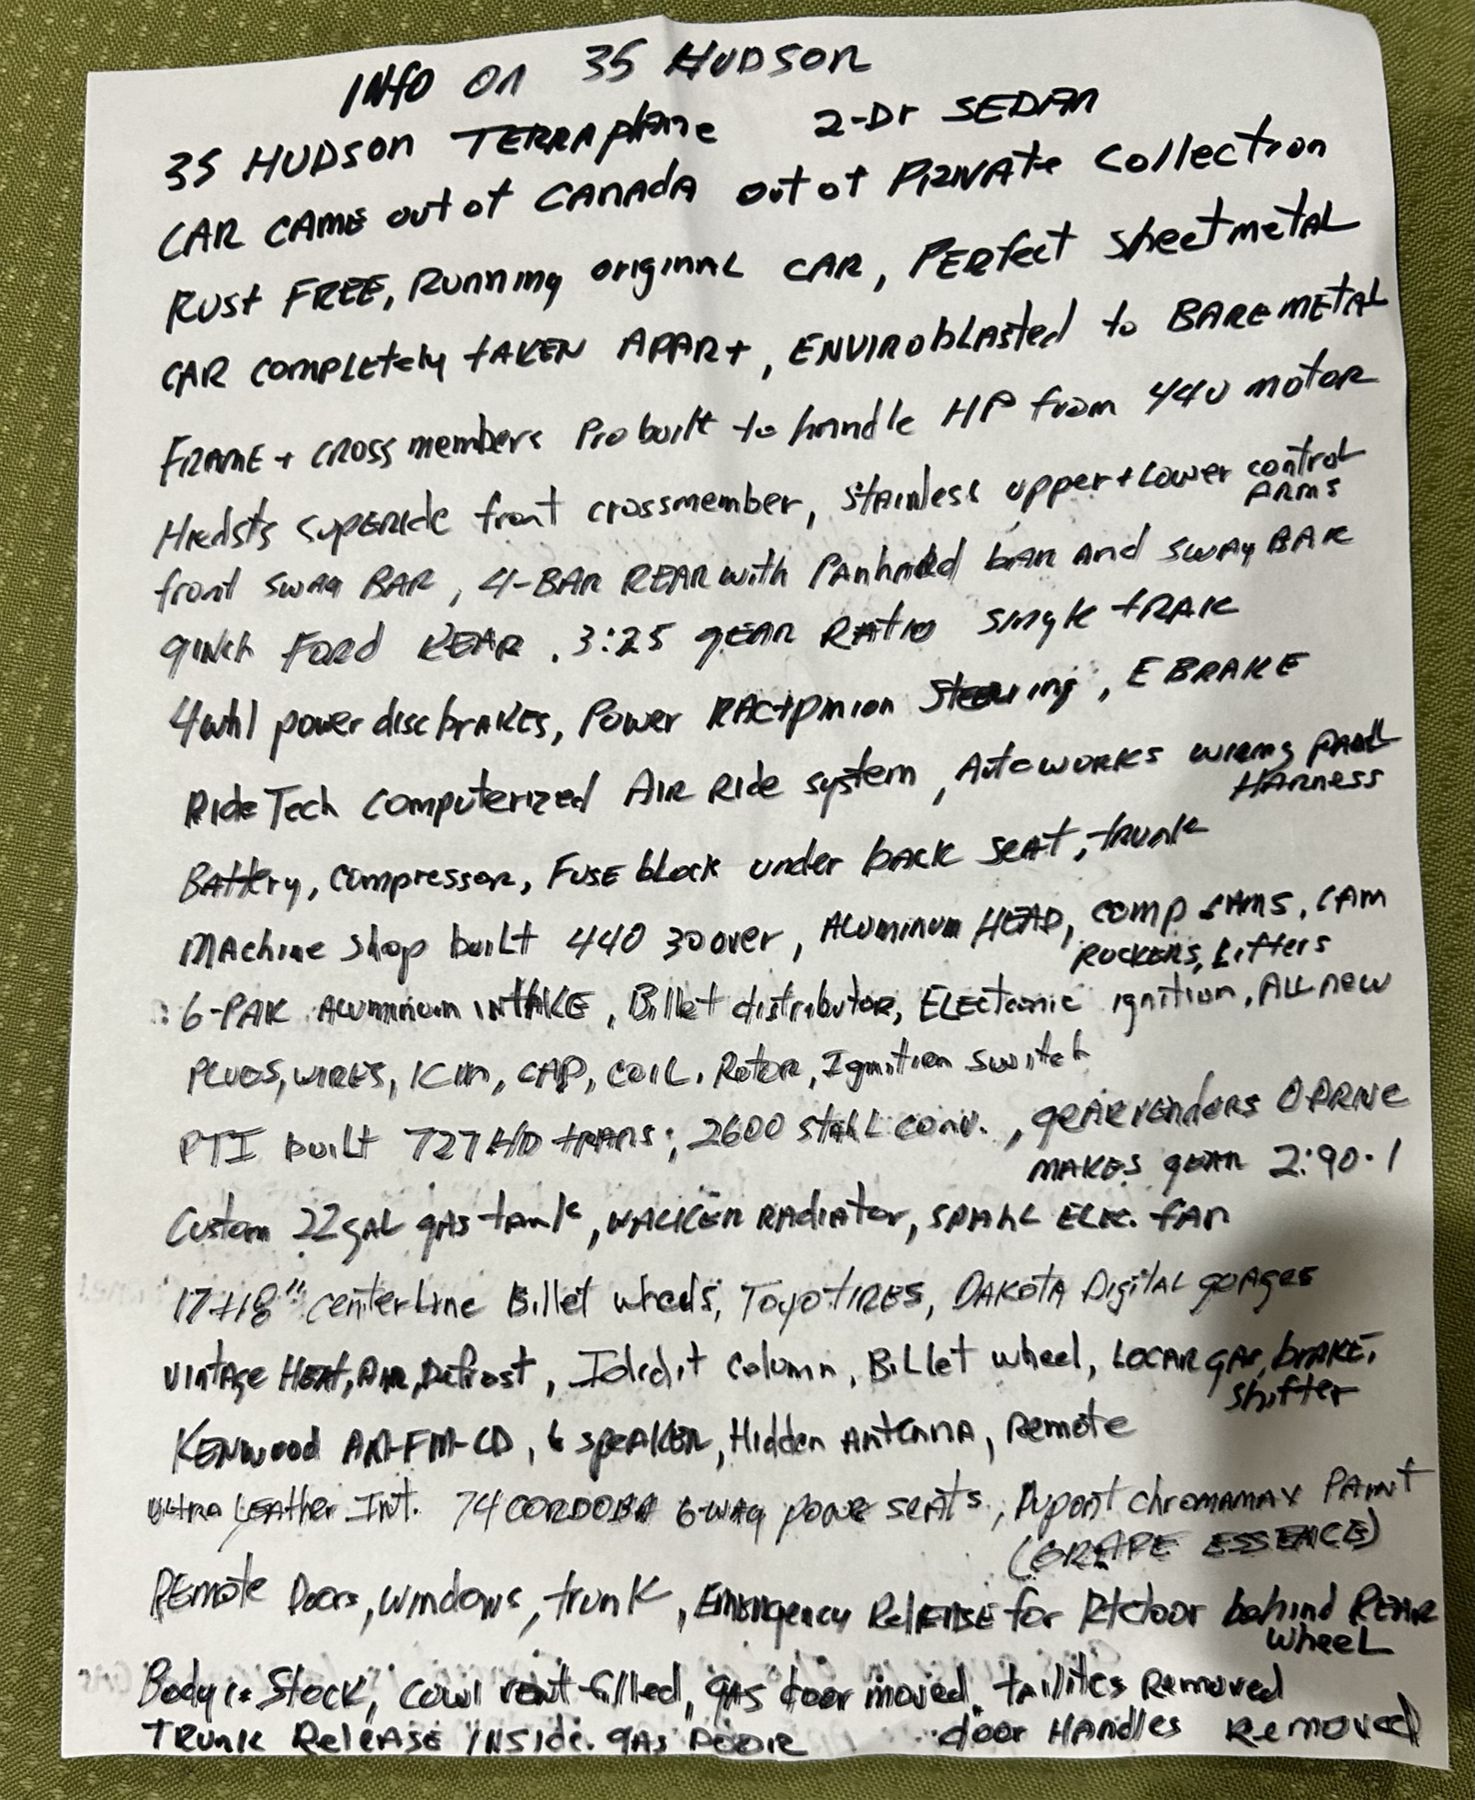 INFO ON 35 HUDSON
35 HUDSON TERRAplane 2-Dr SEDAN
CAR CAME out of CANADA out of PRIVATE Collection
RUST FREE, RUNNING original CAR, PERfect sheetmetAL
CAR completely tAKEN APARt, ENVIROblAsted to BARE METAL
FRAME + CROSS members Pro built to handle HP from 440 motor
Hiedsts supERide front crossmember, STAINless upper + Lower control
ARMS
front SWAy BAR, 4-BAR REAR with PanhaRd bar and SWAy BAR
9inch FORD REAR. 3:25 gEAR RAtio single tRAK
4whl power disc brAKES, Power RAC+pinion Steering, E BRAKE
Ride Tech Computerized AIR Ride system, Autoworks wiring PAnel
HARNESS
BAttery, Compressor, FUSE block under back SEAT, trunk
MAchine Shop built 440 30 over, ALuminum HEAD, comp CAMS, CAM
ROCKERS, Lifters
6-PAK ALuminum INTAKE, Billet distributor, ELECtronic ignition, ALL new
PLUGS, WIRES, CAP, COIL, Rotor, Ignition Switch
PTI built 727 H/D trans; 2600 stall conv., gEAR VENders O DRIVE
MAKES gEAR 2:90.1
Custom 22 gAL gAS tank, WALKER RADiator, SPAhL ELEC. fan
17+18" centerline Billet wheels, Toyo tires, DAKOTA DigitAL guages
VINtage HEAt, AiR, Defrost, Ididit column, Billet wheel, LOCAR gAS, brAKE,
shifter
KENwood AM-FM-CD, 6 speAKER, Hidden Antenna, Remote
ULtRA LEAther Int. 74 CORDOBA 6-WAy power seats, Dupont chromAMAX PAINT
(GRAPE ESSENCE)
REmote Doors, windows, trunk, EMERgency RelEASE for Rt door behind REAR
wheel
Body is Stock, cowl vent filled, gas door moved, tailites Removed
TRUNK RelEASE INside gAS DOOR door HANdles REmoved